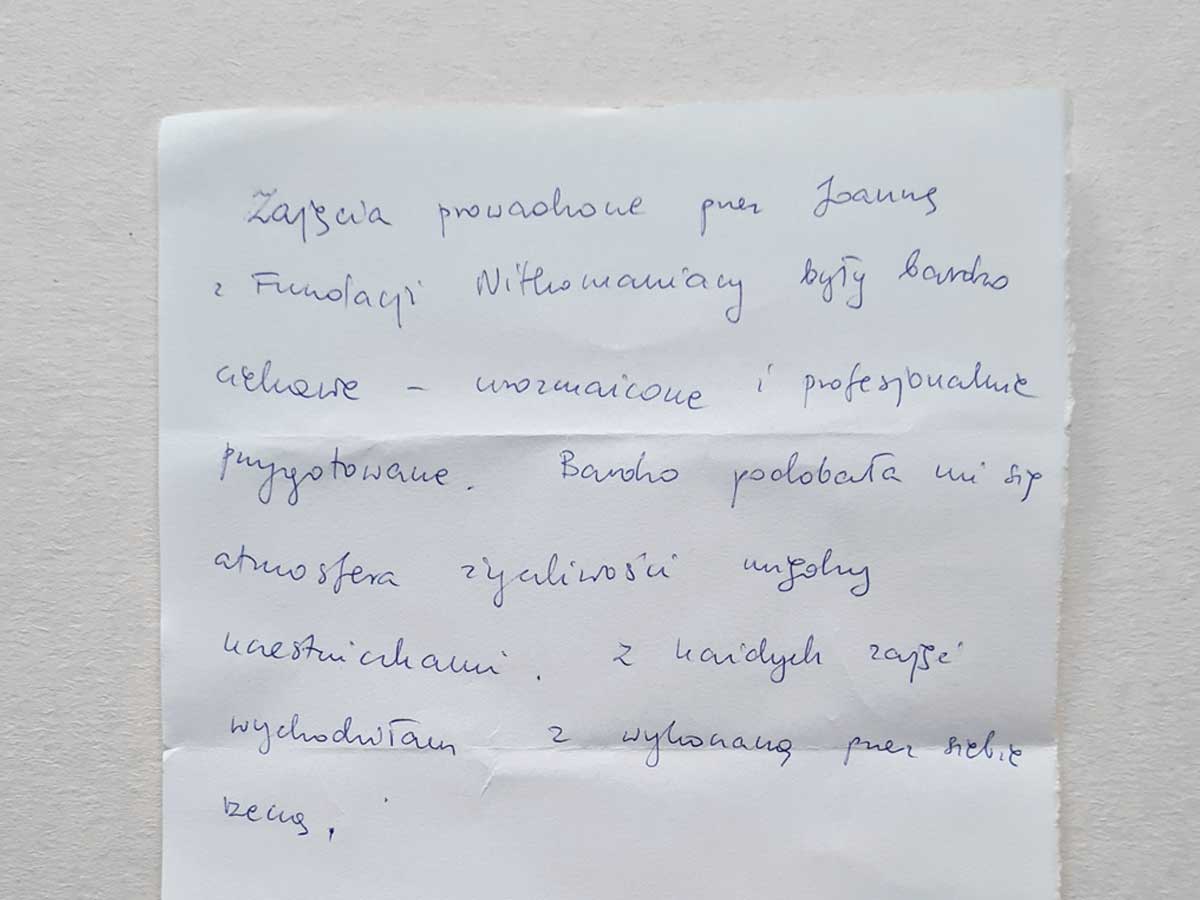 Zajęcia prowadzone przez Joannę
z Fundacji Nitkomaniacy były bardzo
ciekawe – urozmaicone i profesjonalnie
przygotowane. Bardzo podobała mi się
atmosfera życzliwości między
uczestniczkami. Z każdych zajęć
wychodziłam z wykonaną przez siebie
rzeczą.